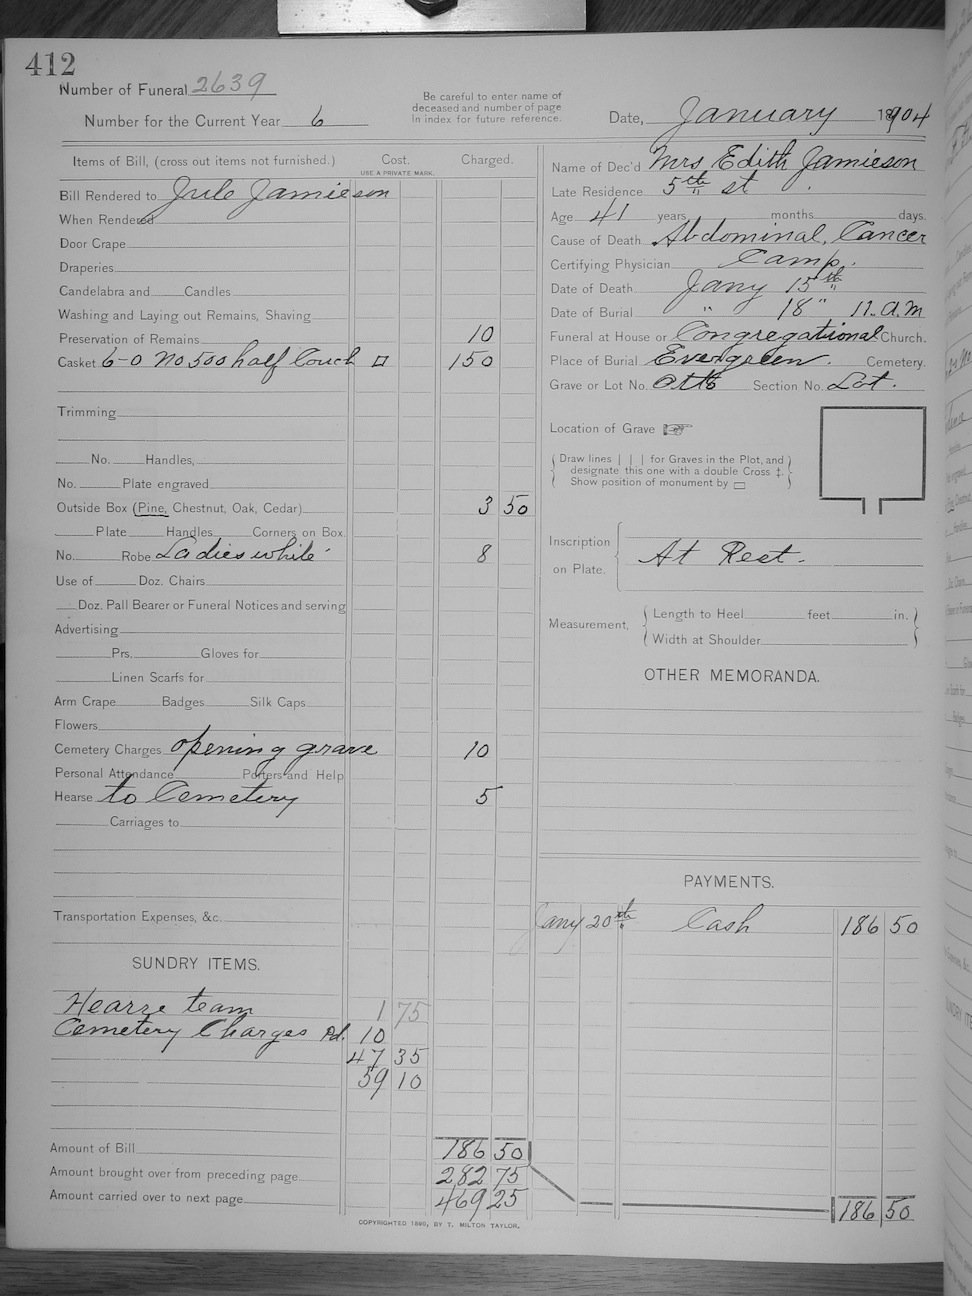 412
Number of Funeral 2639
Be careful to enter name of
deceased and number of page
in index for future reference.
Number for the Current Year 6
Date, January 1904
Items of Bill, (cross out items not furnished.) Cost. Charged.
USE A PRIVATE MARK.
Bill Rendered to Jule Jamieson
When Rendered
Door Crape
Draperies
Candelabra and Candles
Washing and Laying out Remains, Shaving
Preservation of Remains 10
Casket 6-0 No 500 half Couch 150
Trimming
No. Handles,
No. Plate engraved
Outside Box (Pine, Chestnut, Oak, Cedar) 3 50
Plate Handles Corners on Box
No. Robe Ladies white 8
Use of Doz. Chairs
Doz. Pall Bearer or Funeral Notices and serving
Advertising
Prs. Gloves for
Linen Scarfs for
Arm Crape Badges Silk Caps
Flowers
Cemetery Charges opening grave 10
Personal Attendance Porters and Help
Hearse to Cemetery 5
Carriages to
Transportation Expenses, &c.
SUNDRY ITEMS.
Hearse team 1 75
Cemetery Charges Pd. 10
47 35
59 10
Amount of Bill 186 50
Amount brought over from preceding page 282 75
Amount carried over to next page 469 25
Name of Dec'd Mrs Edith Jamieson
Late Residence 5th st
Age 41 years months days.
Cause of Death Abdominal, Cancer
Certifying Physician Camp.
Date of Death Jany 15th
Date of Burial " 18" 11. A.M
Funeral at House or Congregational Church.
Place of Burial Evergreen. Cemetery.
Grave or Lot No. Section No. Lot.
Location of Grave
Draw lines | | | for Graves in the Plot, and
designate this one with a double Cross ‡.
Show position of monument by
Inscription
on Plate. At Rest.
Measurement, Length to Heel feet in.
Width at Shoulder
OTHER MEMORANDA.
PAYMENTS.
Jany 20th Cash 186 50
186 50
COPYRIGHTED 1890, BY T. MILTON TAYLOR.